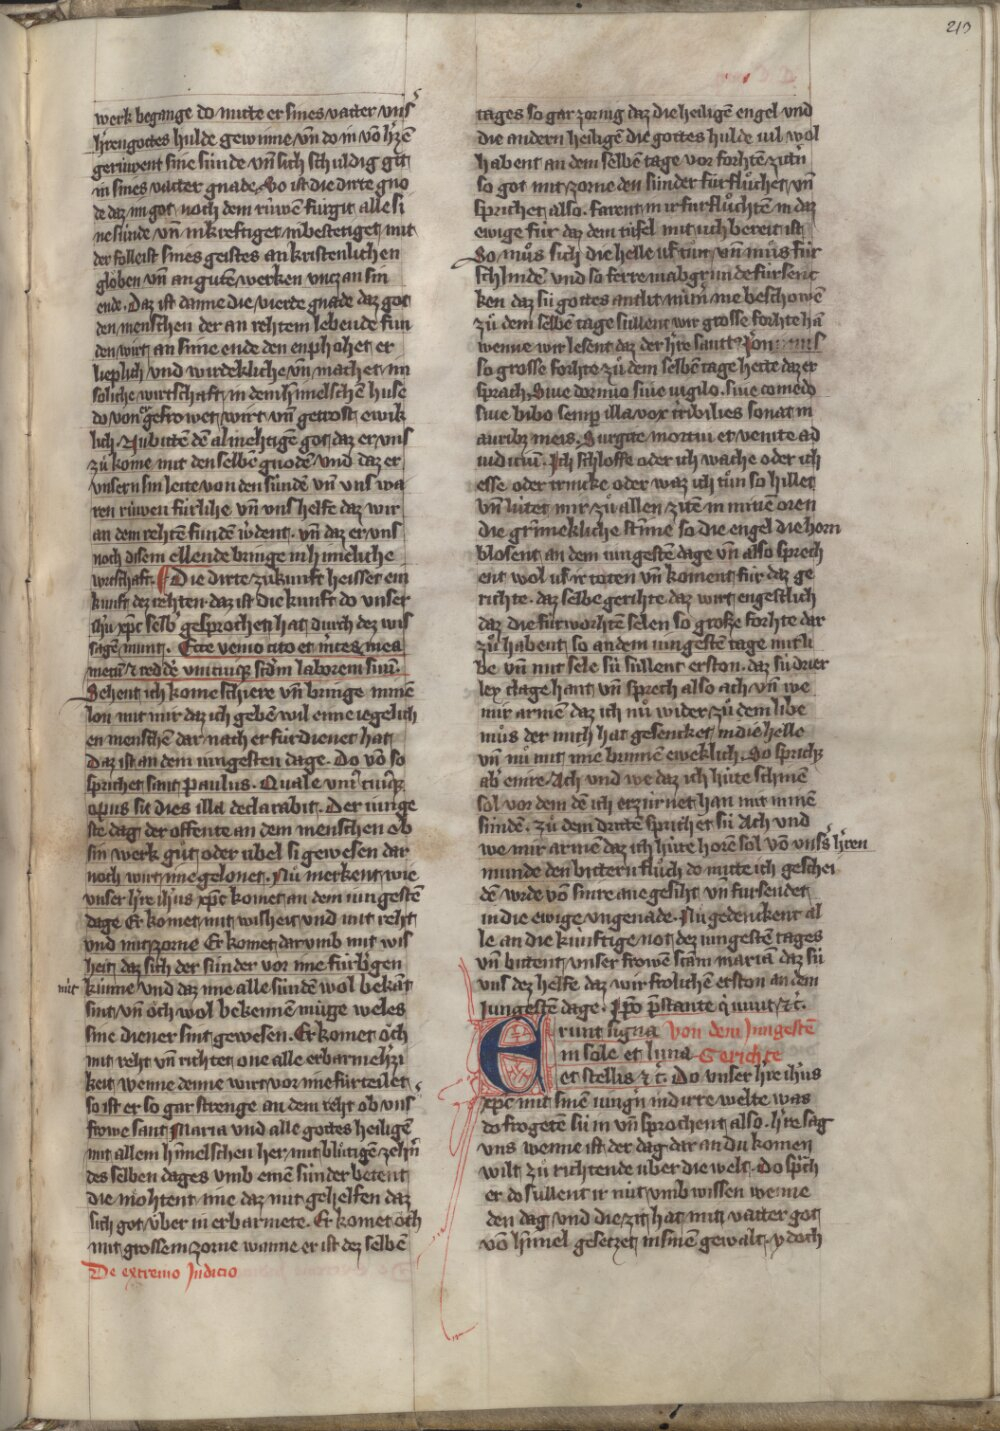 210
werk begange do mitte er sines vatter vnſ
h̓ren gottes hulde gewinne vn̄ do in vō h̓zē
geruwent sine sünde vn̄ sich schuldig git
in sines vatter gnade. So ist die dirte gno
de daz im got noch dem rúwen fúrgit alle si
ne súnde vn̄ in kreftiget in bestetiget mit
der folleist sines geistes an kristenlichen
glöben vn̄ an gutē werken vntz an sin
ende. Daz ist danne die vierde gnade daz got
den menschen der an rehtem lebende fun
den wirt an sime ende den enphohet er
lieplich vnd wirdekliche vn̄ machet im
soliche wirtschaft in dem himelschen huse
do von er gefrowet wirt vn̄ getrost ewik
lich. Nu bittē dē almehtigē got daz er vns
zů kome mit den selbē gnodē vnd daz er
vnsern sin leite von den súndē vn̄ vns wa
ren rúwen fúrlihe vn̄ vns helfe daz wir
an dem rehtē fundē w̓dent. vn̄ daz er vns
noch disem ellende bringe in himeliche
wirtschaft. Die dirte zůkunft heisset ein
kunft dez rehten. daz ist die kunft do vnser
ih̓u xp̄c selb̓ gesprochen hat durch dez wis
sagen munt. Ecce venio cito et m̓ces mea
mecū ⁊ redd̓e vnicuiq̄ scd̄m laborem suū.
Sehent ich kome schiere vn̄ bringe minē
lon mit mir daz ich gebē wil eime iegelich
en menschē dar nach er fúrdienet hat
Daz ist an dem iungesten dage. Do vō so
sprichet sant Paulus. Quale vni̓cuiuſq̄
opus sit dies illa declarabit. Der iunge
ste dag der offente an dem menschen ob
sin werk gůt oder úbel si gewesen dar
noch wirt ime gelonet. Nů merkent wie
vnser h̓re ih̓us xp̄c komet an dem iungestē
dage Er komet mit wisheit vnd mit reht
vnd mit zorne Er komet darvmb mit wis
heit daz sich der súnder vor ime fúrb̓gen
nút kunne vnd daz ime alle súnden wol bekāt
sint vn̄ öch wol bekennē múge weles
sine diener sint gewesen. Er komet öch
mit reht vn̄ richtet one alle erbarmehzi
keit wenne denne wirt vor ime fúrteilet
so ist er so gar strenge an dem reht ob vnſ
frowe sant Maria vnd alle gottes heiligē
mit allem himelschen her mit blůtigē zehn̄
des selben dages vmb einē súnder betent
die mohtent ime daz nit gehelfen daz
sich got úber in erbarmete. Er komet öch
mit grossem zorne wanne er ist dez selbē
De extremo Judicio
tages so gar zornig daz die heiligē engel vnd
die andern heiligē die gottes hulde iul wol
habent an dem selbē tage vor forhtē zit̓n
so got mit zorne den súnder fúrflůchet vn̄
sprichet also. farent mir fúrflůchtē in daz
ewige fúr daz dem túfel mit úch bereit ist
So můs sich die helle uf tůn vn̄ můs fúr
schlindē vnd so ferre in abgrunde fúrsenc
ken daz sú gottes antlit nim̄ me beschowē
Zů dem selbē tage súllent wir grosse forhte hā
wenne wir lesent daz der h̓re sant
so grosse forhte zů dem selbē tage hette daz er
sprach. Siue dormio siue vigilo. siue comedo
siue bibo semp illa vox tribilies sonat in
auribȝ meis. Surgite mortui et venite ad
iudiciū. Ich schloffe oder ich wache oder ich
esse oder trincke oder waz ich tůn so hillet
vn̄ lútet mir zů allen zitē in minē oren
die gri̓mekliche stīme so die engel die horn
blosent an dem iungestē dage vn̄ also sprech
ent wol uf ir toten vn̄ koment fúr daz ge
richte. daz selbe gerihte daz wirt engestlich
daz die fúrworhtē selen so große forhte dar
zů habent so an dem iungestē tage mit li
be vn̄ mit sele sú súllent erston. daz sú drier
ley clage hant vn̄ sprech also ach vn̄ we
mir armē daz ich nů wider zů dem libe
můs der mich hat gesencket in die helle
vn̄ nů mit ime brinnē eweklich. So sprich̓
ab̓ eine. Ach vnd we daz ich húte schinē
sol vor dem dē ich erzúrnet han mit minē
súndē. Zů dem drittē sprichet sú Ach vnd
we mir armē daz ich húte horē sol vō vnſs̓ h̓ren
munde den bittern flůch do mitte ich geschei
dē w̓de vō sime anegesiht vn̄ fúrsendet
in die ewige vngenade. Nu gedenckent al
le an die kúnftige not dez iungestē tages
vn̄ bittent vnser frowē sc̄am mariā daz sú
vns dez helfe daz wir frolichē erston an dem
Jungestē dage. Ip̄o p̄stante q̓ viuit ⁊ c̄.
Erunt signa Von dem Jungestē
in sole et luna Gerichte
et stellis ⁊ c̄. Do vnser h̓re ih̓us
xp̄c mit sinē iung̓n in dirte welte was
do frogetē sú in vn̄ sprochent also. h̓re sag
vns wenne ist der dag dar an du komen
wilt zů richtende úber die welt. Do sp̓ch
er do súllent ir nút vmb wissen wenne
den dag vnd die zit hat min vatter got
vō him̄el gesetzet in sinē gewalt. ydoch